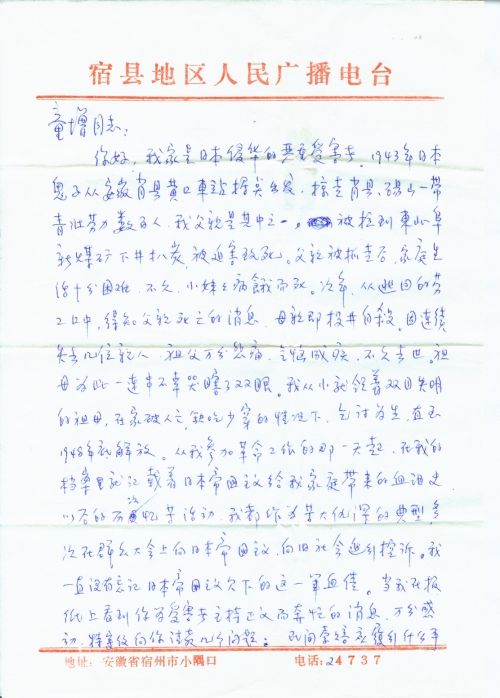 宿县地区人民广播电台
童增同志:
你好，我家是日本侵华的严重受害者。1943年日本
鬼子从安徽肖县黄口車站据点出发，掠走肖县、砀山一带
青壮劳力数百人，我父亲是其中之一。被抢到東北阜
新煤矿下井扒炭，被迫害致死。父亲被抓走后，家庭生
活十分困难，不久，小妹生病饿而死。次年，从逃回的劳
工口中，得知父亲死亡的消息，母亲即投井自杀。因连续
失去几位亲人，祖父万分悲痛，气恼成疾，不久去世。祖
母为此一连串不幸哭瞎了双眼。我从小就领着双目失明
的祖母，在家破人亡，缺吃少穿的情况下，乞讨为生，直至
1948年底解放。从我参加革命工作的那一天起，在我的
档案里就记载着日本帝国主义给我家庭带来的血泪史
以后的历次忆苦活动，我都作为苦大仇深的典型，多
次在群众大会上向日本帝国主义，向旧社会进行控诉。我
一直没有忘记日本帝国主义欠下的这一笔血债。当我在报
纸上看到你为受害者主持正义而奔忙的消息，万分感
动，特写信向你请教几个问题： 民间索赔应履行什么手
地址：安徽省宿州市小隅口 电话:24737